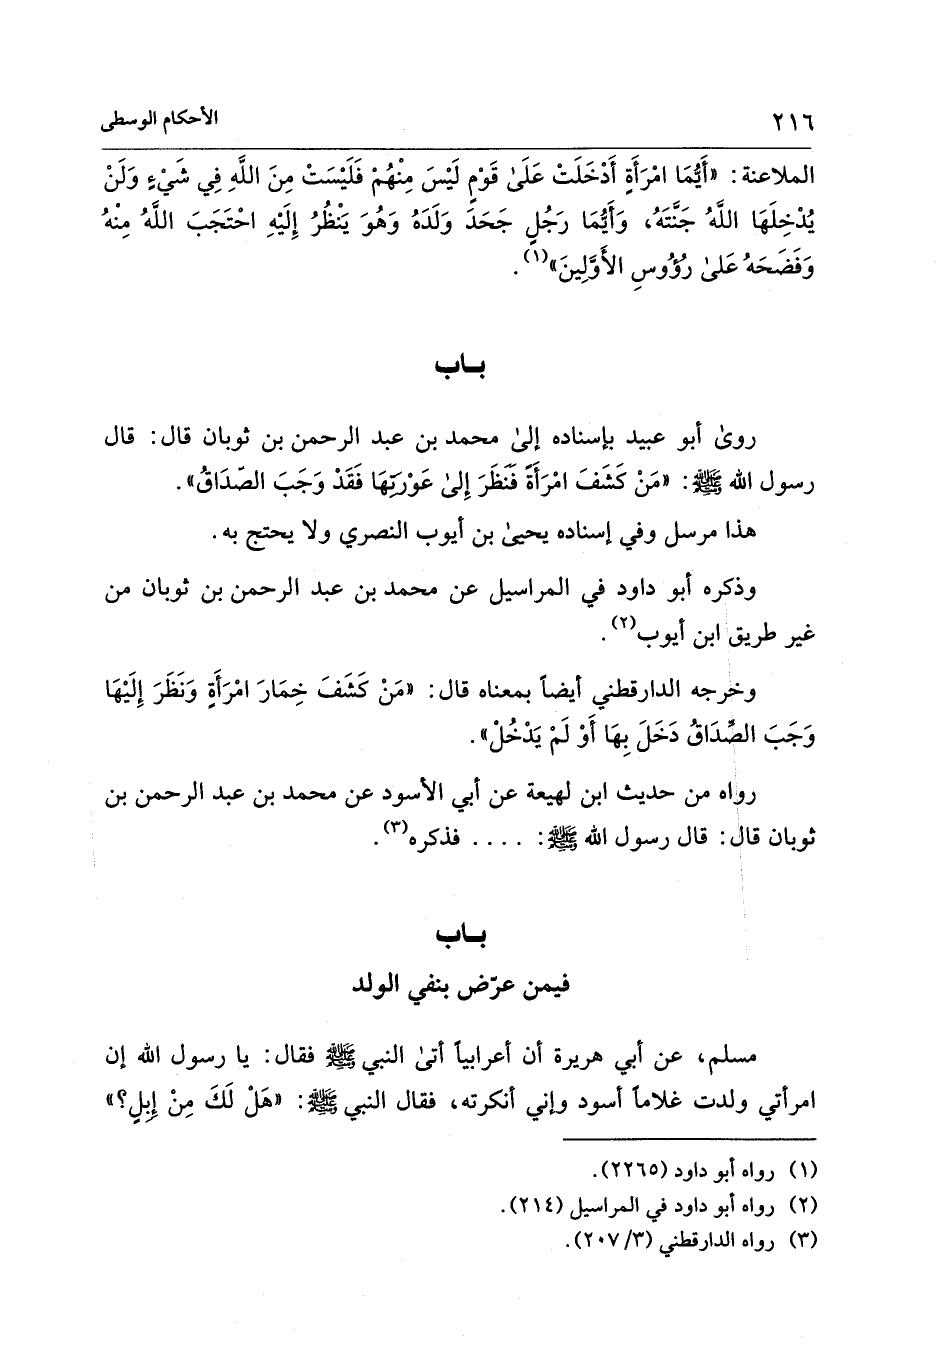 ٢١٦ الأحكام الوسطى
الملاعنة: «أَيُّمَا امْرَأَةٍ أَدْخَلَتْ عَلَىٰ قَوْمٍ لَيْسَ مِنْهُمْ فَلَيْسَتْ مِنَ اللَّهِ فِي شَيْءٍ وَلَنْ
يُدْخِلَهَا اللَّهُ جَنَّتَهُ، وَأَيُّمَا رَجُلٍ جَحَدَ وَلَدَهُ وَهُوَ يَنْظُرُ إِلَيْهِ احْتَجَبَ اللَّهُ مِنْهُ
وَفَضَحَهُ عَلىٰ رُؤُوسِ الأَوَّلِينَ»(١).
بـاب
روىٰ أبو عبيد بإسناده إلىٰ محمد بن عبد الرحمن بن ثوبان قال: قال
رسول الله ﷺ: «مَنْ كَشَفَ امْرَأَةً فَنَظَرَ إِلىٰ عَوْرَتِهَا فَقَدْ وَجَبَ الصَّدَاقُ».
هذا مرسل وفي إسناده يحيىٰ بن أيوب النصري ولا يحتج به.
وذكره أبو داود في المراسيل عن محمد بن عبد الرحمن بن ثوبان من
غير طريق ابن أيوب(٢).
وخرجه الدارقطني أيضاً بمعناه قال: «مَنْ كَشَفَ خِمَارَ امْرَأَةٍ وَنَظَرَ إِلَيْهَا
وَجَبَ الصَّدَاقُ دَخَلَ بِهَا أَوْ لَمْ يَدْخُلْ».
رواه من حديث ابن لهيعة عن أبي الأسود عن محمد بن عبد الرحمن بن
ثوبان قال: قال رسول الله ﷺ: .... فذكره(٣).
بـاب
فيمن عرّض بنفي الولد
مسلم، عن أبي هريرة أن أعرابياً أتىٰ النبي ﷺ فقال: يا رسول الله إن
امرأتي ولدت غلاماً أسود وإني أنكرته، فقال النبي ﷺ: «هَلْ لَكَ مِنْ إِبِلٍ؟»
(١) رواه أبو داود (٢٢٦٥).
(٢) رواه أبو داود في المراسيل (٢١٤).
(٣) رواه الدارقطني (٣/ ٢٠٧).